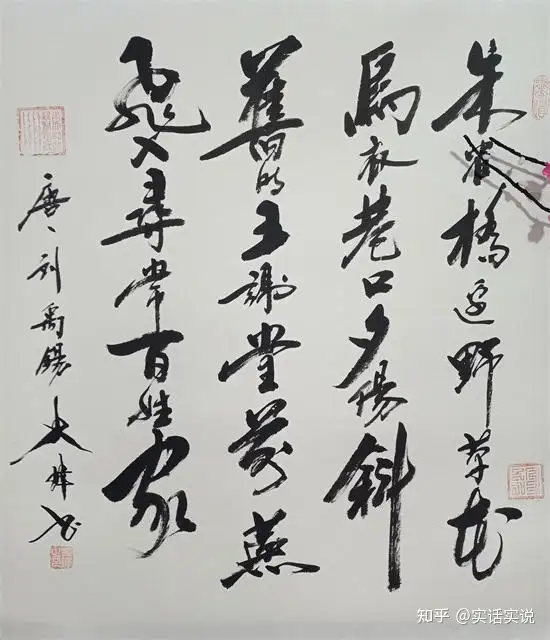 朱雀橋邊野草花
烏衣巷口夕陽斜
舊時王謝堂前燕
飛入尋常百姓家
唐、刘禹錫 书
知乎 @实话实说